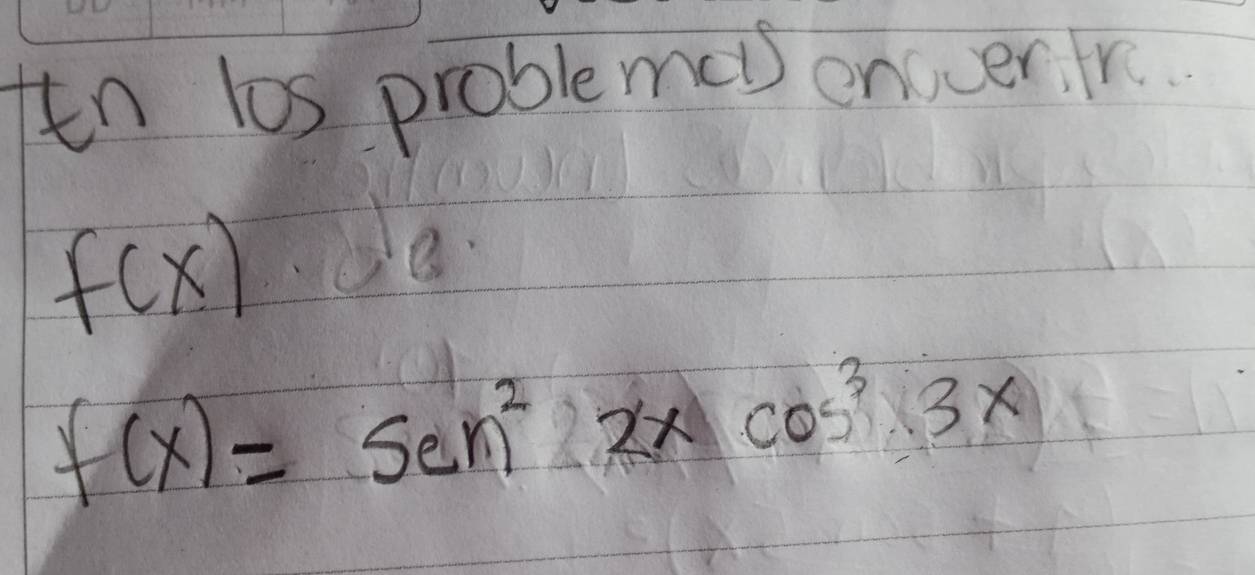 En los problemas encuentre..
f(x). de.
f(x) = sen² 2x cos³ 3x